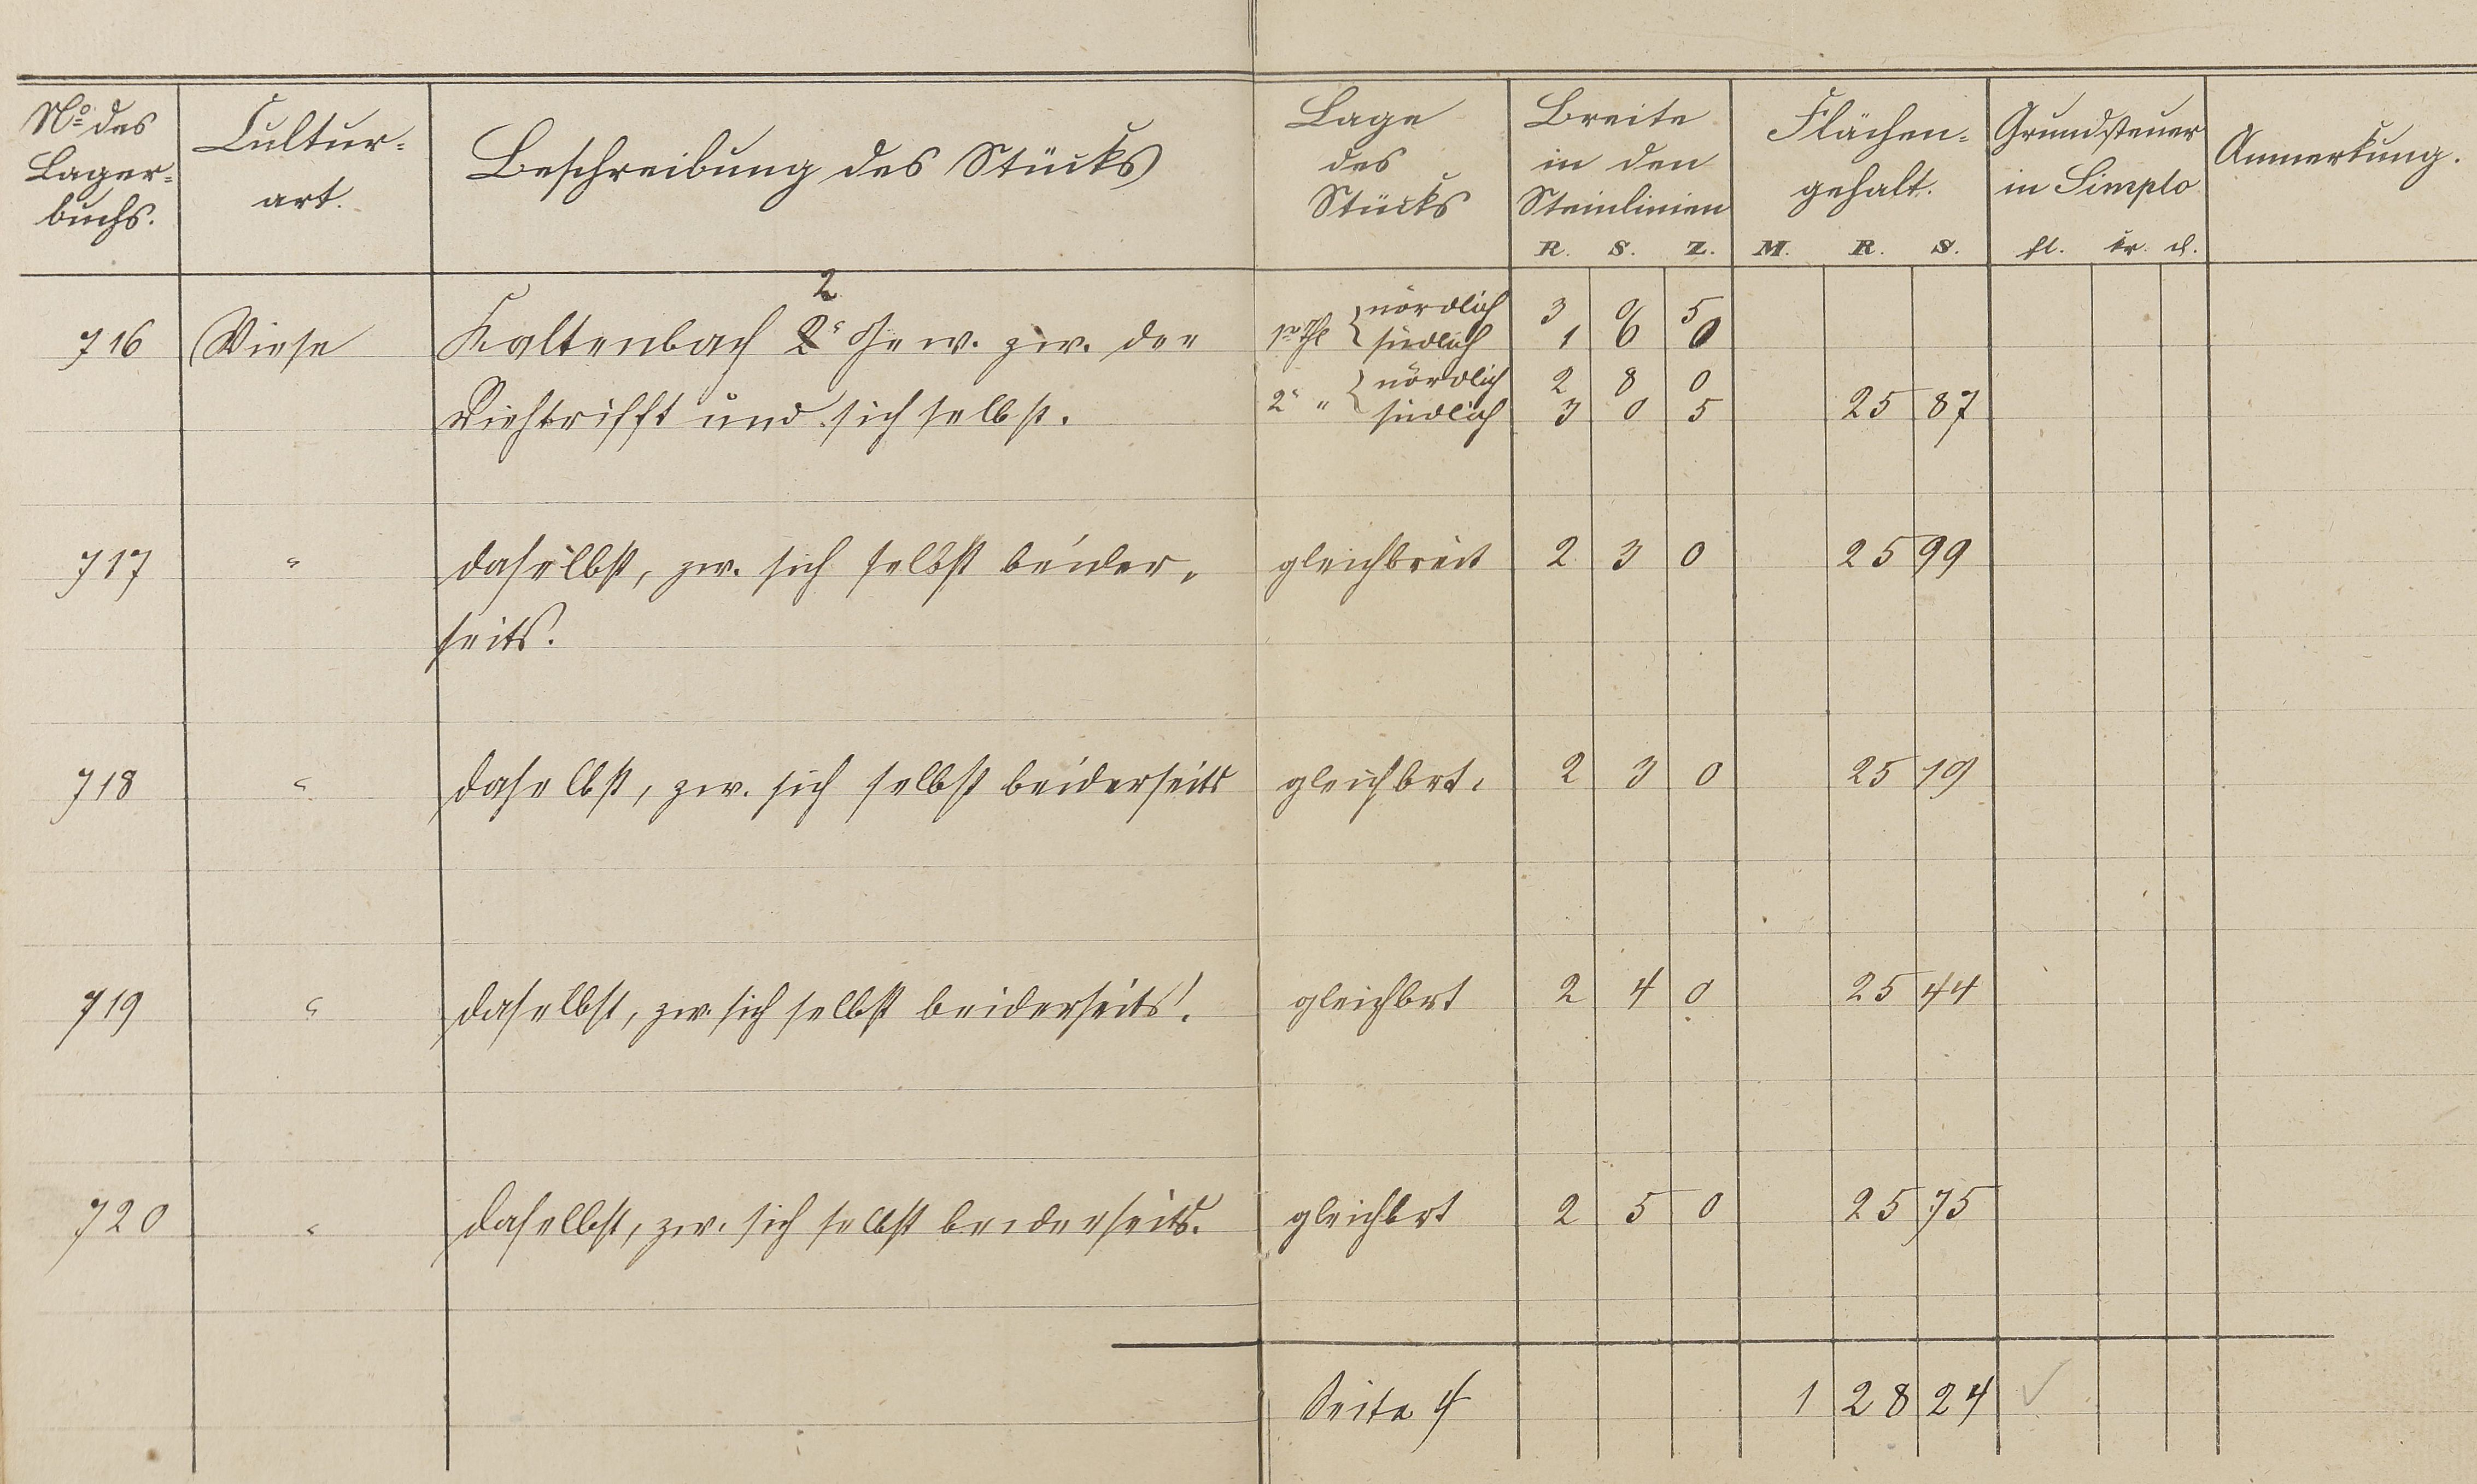 No des Lager= buchs.
Cultur= art.
Beschreibung des Stücks
Lage des Stücks
Breite in den Steinlinien
R. S. Z.
Flächen= gehalt.
M. R. S.
Grundsteuer in Simplo
fl. kr. d.
Anmerkung.
2
716 Wiese Kaltenbach 2s Gew. zw. der 1r Thl { nördlich 3 0 5
südlich 1 6 0
Viehtrifft und sich selbst. 2r " { nördlich 2 8 0
südlich 3 0 5 25 87
717 " daselbst, zw. sich selbst beider, gleichbreit 2 3 0 25 99
seits.
718 " daselbst, zw. sich selbst beiderseits gleichbrt. 2 3 0 25 19
719 " daselbst, zw. sich selbst beiderseits. gleichbrt 2 4 0 25 44
720 " daselbst, zw. sich selbst beiderseits. gleichbrt 2 5 0 25 75
Seite 4 1 28 24